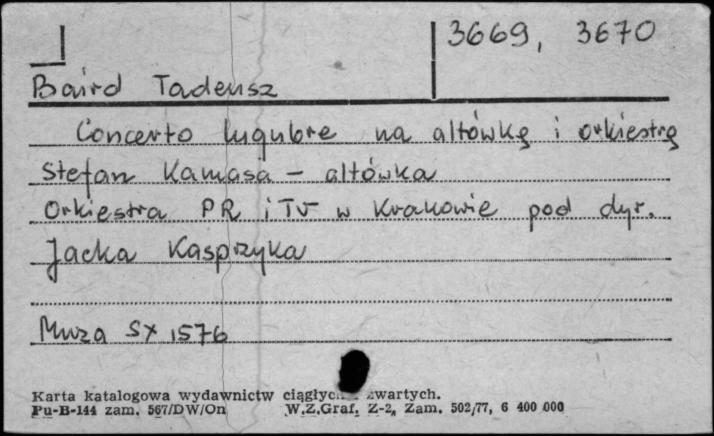 3669, 3670
Baird Tadeusz
Concerto lugubre na altówkę i orkiestrę
Stefan Kamasa - altówka
Orkiestra PR i TV w Krakowie pod dyr.
Jacka Kasprzyka
Muza SX 1576
Karta katalogowa wydawnictw ciągłych zwartych.
Pu-B-144 zam. 567/DW/On W.Z.Graf. Z-2, Zam. 502/77, 6 400 000